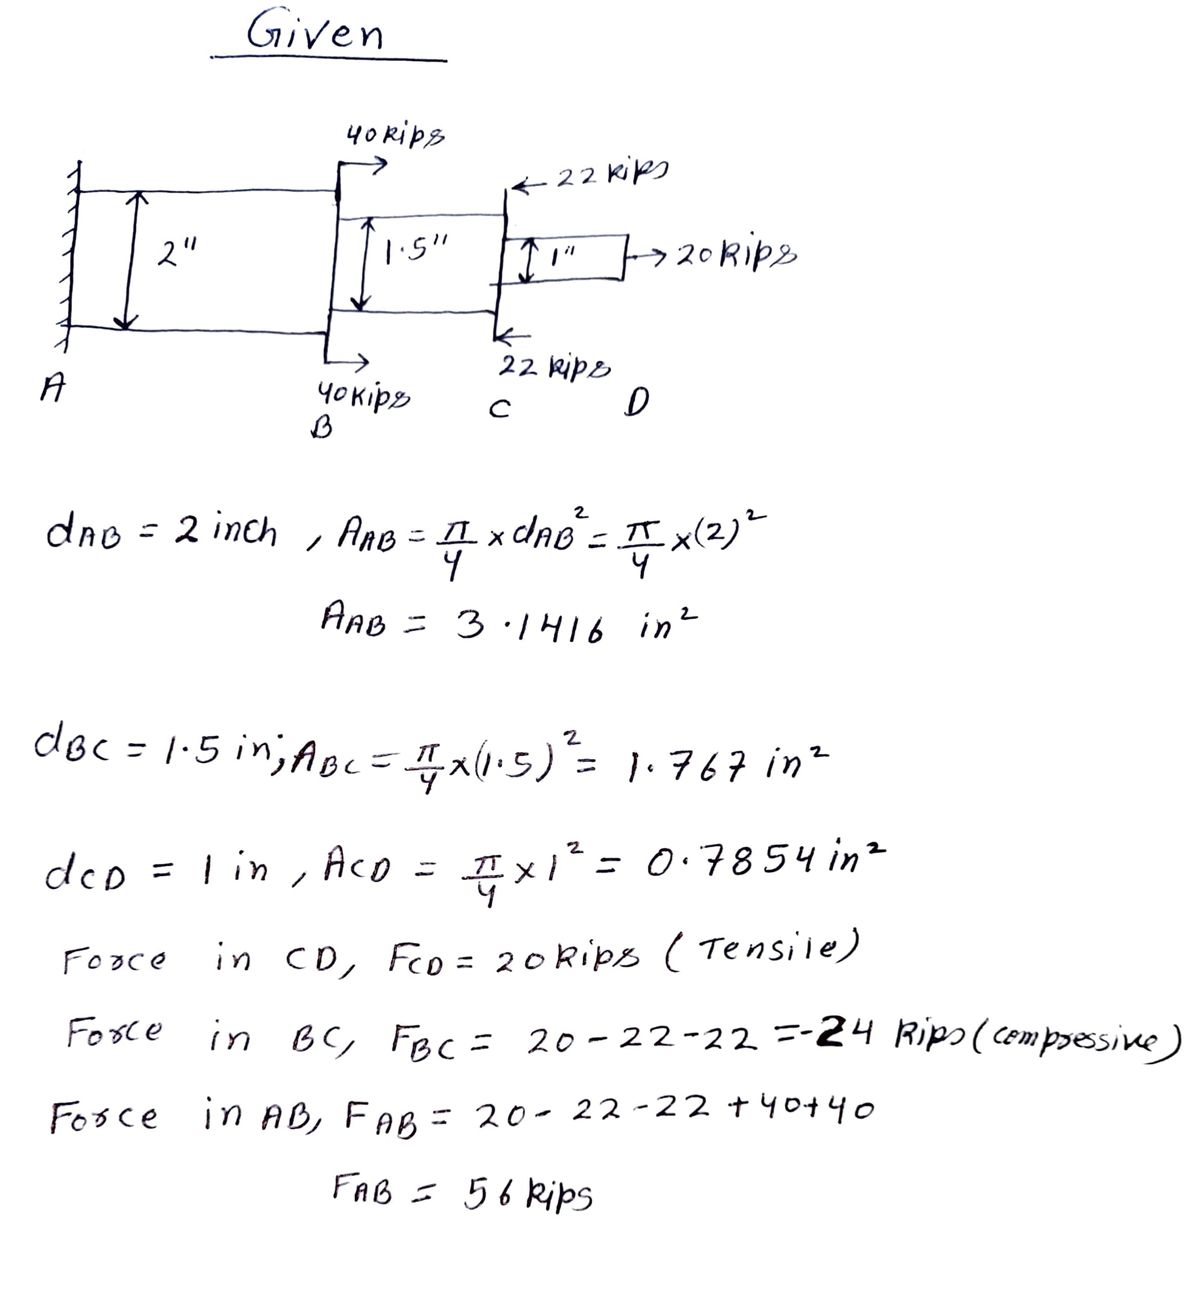 Given
40 kips
22 kips
2"
1.5"
1"
20 kips
22 kips
A
40 kips
B
C
D
dAB = 2 inch , AAB = π/4 × dAB² = π/4 × (2)²
AAB = 3.1416 in²
dBC = 1.5 in; ABC = π/4 × (1.5)² = 1.767 in²
dCD = 1 in , ACD = π/4 × 1² = 0.7854 in²
Force in CD, FCD = 20 kips (Tensile)
Force in BC, FBC = 20 - 22 - 22 = -24 kips (compressive)
Force in AB, FAB = 20 - 22 - 22 + 40 + 40
FAB = 56 kips